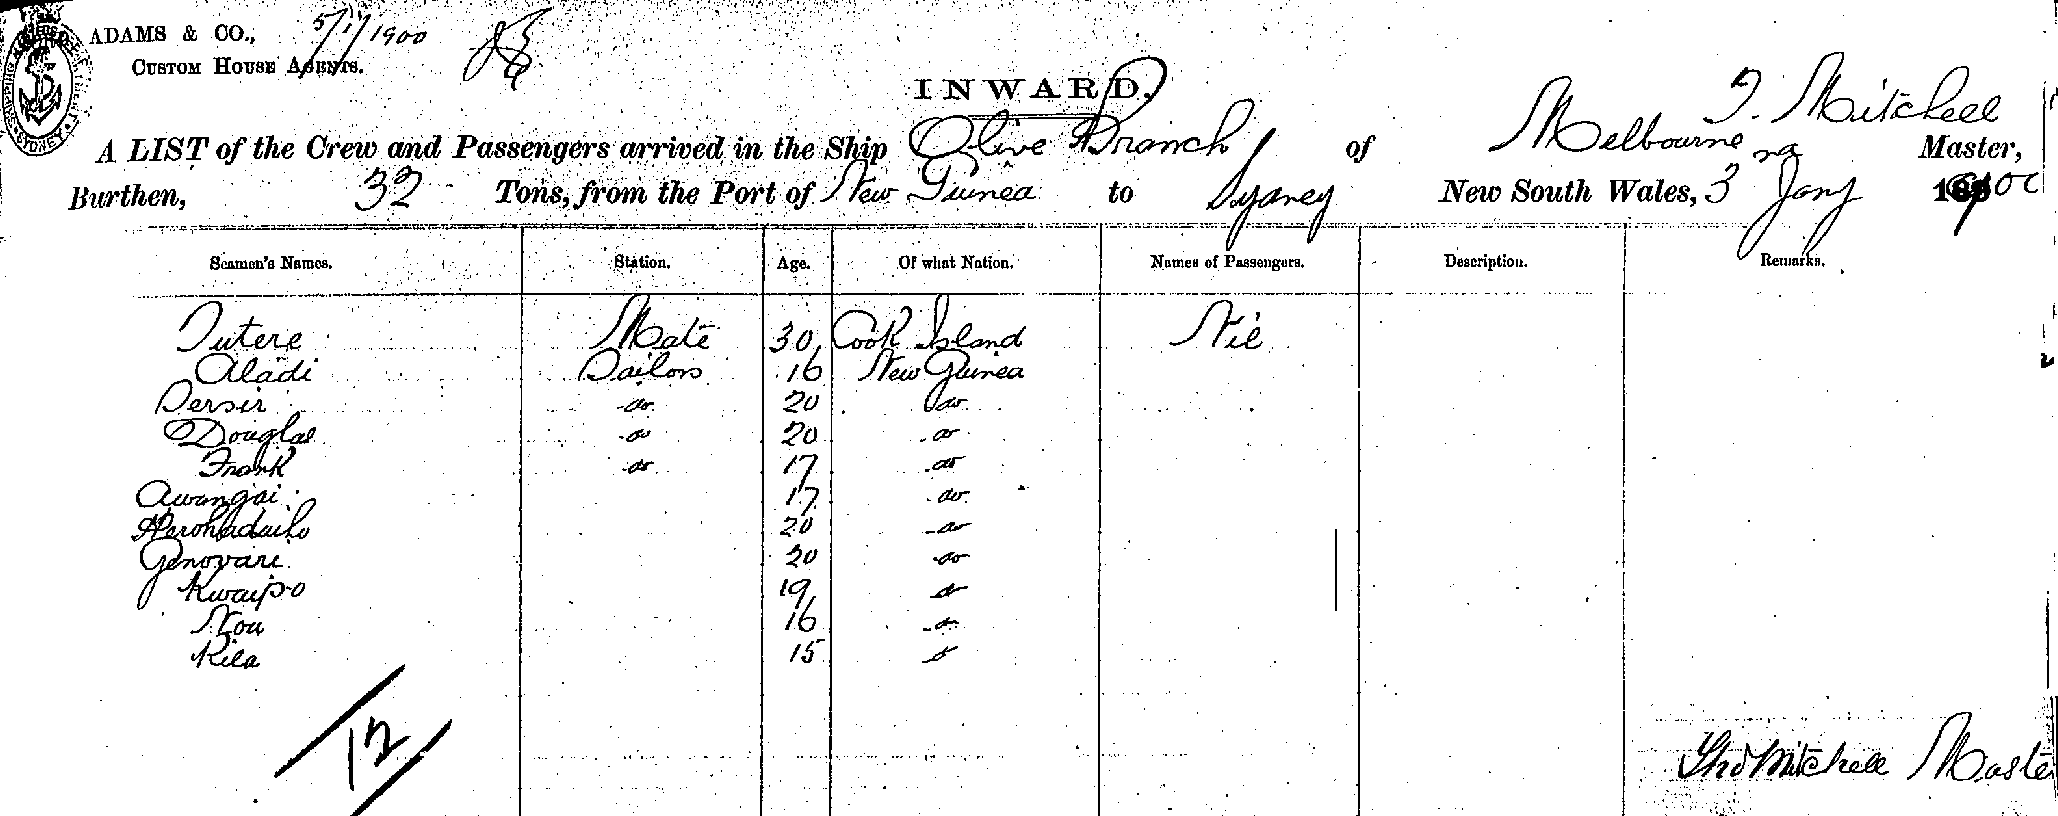 ADAMS & CO., 5/1/1900
CUSTOM HOUSE AGENTS.
INWARD.
T. Mitchell
A LIST of the Crew and Passengers arrived in the Ship Olive Branch of Melbourne Master,
Burthen, 32 Tons, from the Port of New Guinea to Sydney New South Wales, 3 Jany 1900
Seamen's Names. Station. Age. Of what Nation. Names of Passengers. Description. Remarks.
Tutere Mate 30 Cook Island Nil
Aladi Sailors 16 New Guinea
Dersir do 20 do
Douglas do 20 do
Frank do 17 do
Awangai 17 do
20 do
Genovari 20 do
Kwaipo 19 do
Nou 16 do
Kila 15 do
12
Thos Mitchell Master